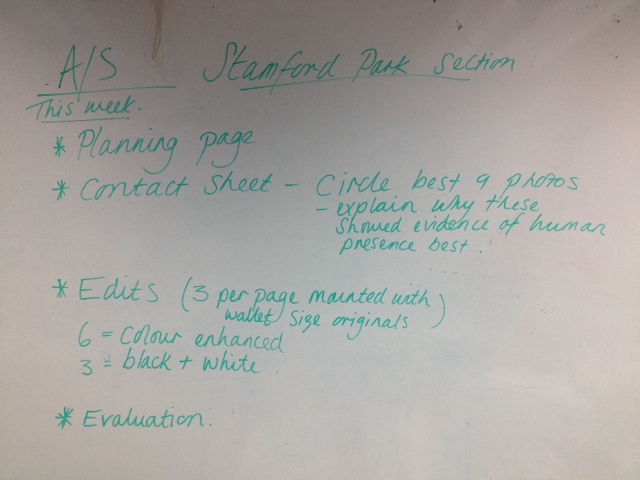 A/S Stamford Park Section
This week.
* Planning page
* Contact Sheet - Circle best 9 photos
- explain why these
showed evidence of human
presence best.
* Edits (3 per page mounted with
wallet size originals)
6 = Colour enhanced
3 = black + white.
* Evaluation.